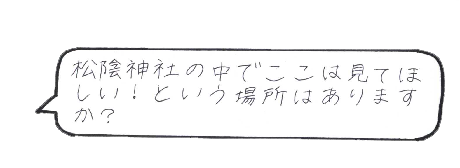 松陰神社の中でここは見てほ
しい！という場所はあります
か？